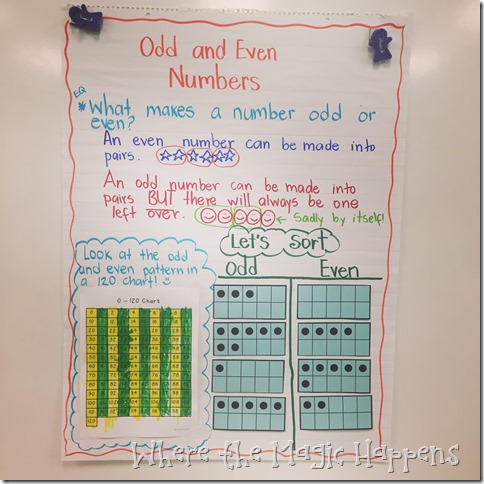 Odd and Even
Numbers
EQ
* What makes a number odd or
even?
An even number can be made into
pairs.
An odd number can be made into
pairs BUT there will always be one
left over.
← Sadly by itself!
Look at the odd
and even pattern in
a 120 chart!
0 - 120 Chart
0 2 4 6 8
10
20
30
40
50
60
70
80
90
100
110
120
Let's Sort
Odd Even
Where the Magic Happens